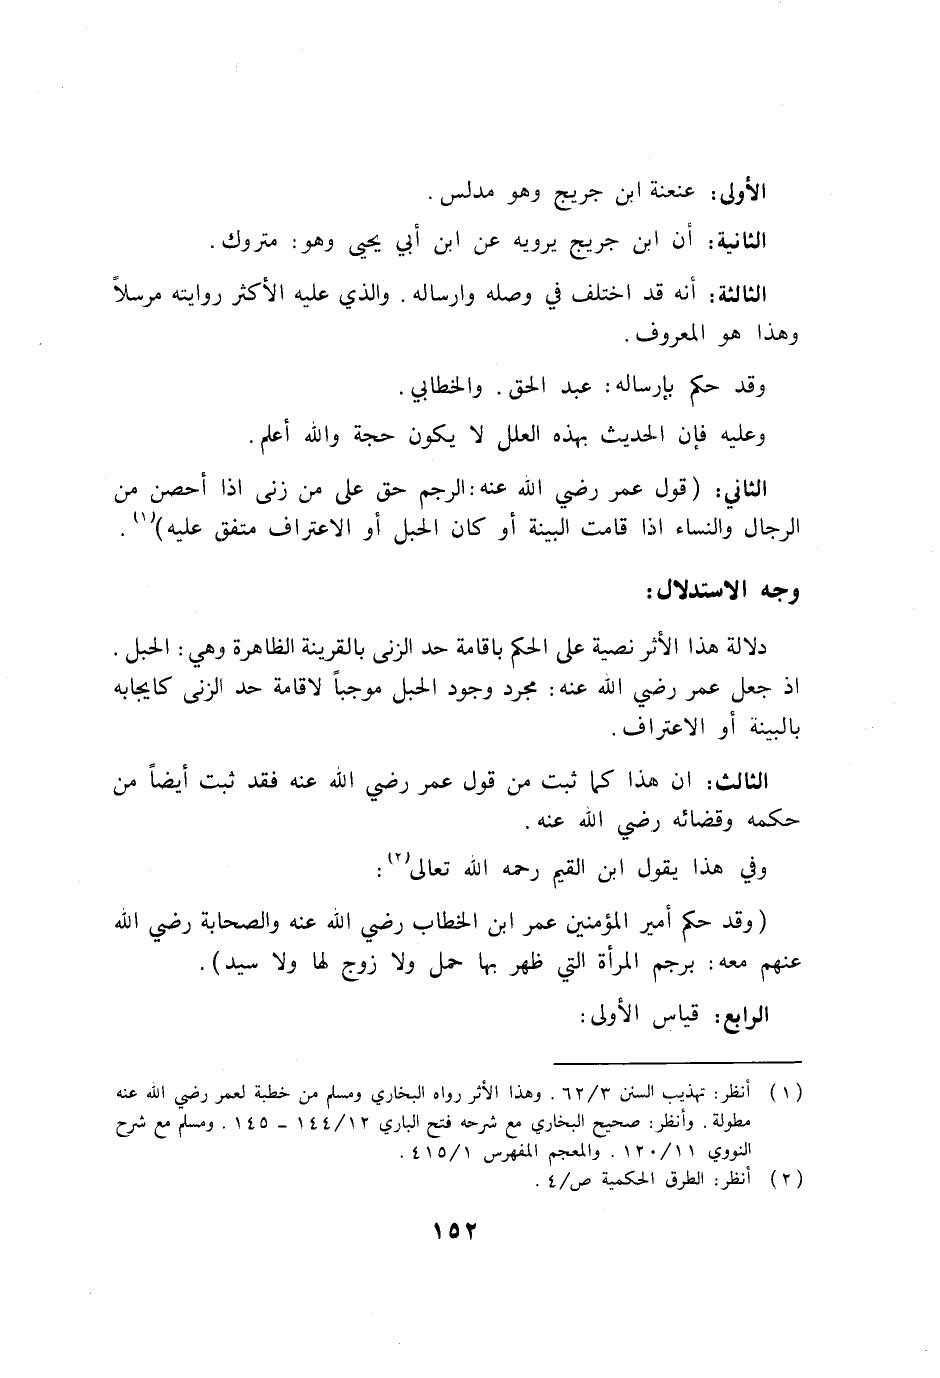 الأولى: عنعنة ابن جريج وهو مدلس.
الثانية: أن ابن جريج يرويه عن ابن أبي يحيى وهو: متروك.
الثالثة: أنه قد اختلف في وصله وارساله. والذي عليه الأكثر روايته مرسلاً
وهذا هو المعروف.
وقد حكم بإرساله: عبد الحق. والخطابي.
وعليه فإن الحديث بهذه العلل لا يكون حجة والله أعلم.
الثاني: (قول عمر رضي الله عنه: الرجم حق على من زنى اذا أحصن من
الرجال والنساء اذا قامت البينة أو كان الحبل أو الاعتراف متفق عليه)(١).
وجه الاستدلال:
دلالة هذا الأثر نصية على الحكم باقامة حد الزنى بالقرينة الظاهرة وهي: الحبل.
اذ جعل عمر رضي الله عنه: مجرد وجود الحبل موجباً لاقامة حد الزنى كايجابه
بالبينة أو الاعتراف.
الثالث: ان هذا كما ثبت من قول عمر رضي الله عنه فقد ثبت أيضاً من
حكمه وقضائه رضي الله عنه.
وفي هذا يقول ابن القيم رحمه الله تعالى(٢):
(وقد حكم أمير المؤمنين عمر ابن الخطاب رضي الله عنه والصحابة رضي الله
عنهم معه: برجم المرأة التي ظهر بها حمل ولا زوج لها ولا سيد).
الرابع: قياس الأولى:
(١) أنظر: تهذيب السنن ٦٢/٣. وهذا الأثر رواه البخاري ومسلم من خطبة لعمر رضي الله عنه
مطولة. وأنظر: صحيح البخاري مع شرحه فتح الباري ١٤٤/١٢ - ١٤٥. ومسلم مع شرح
النووي ١٢٠/١١. والمعجم المفهرس ٤١٥/١.
(٢) أنظر: الطرق الحكمية ص/٤.
١٥٢